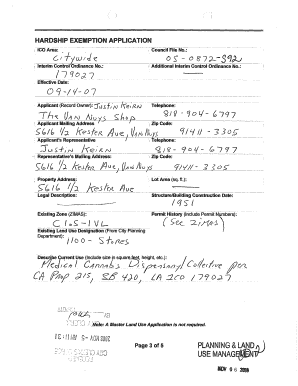 HARDSHIP EXEMPTION APPLICATION
ICO Area: Council File No.:
Citywide 05-0872-S92
Interim Control Ordinance No.: Additional Interim Control Ordinance No.:
179027
Effective Date:
09-14-07
Applicant (Record Owner) Justin Keirn Telephone:
The Van Nuys Shop 818-904-6797
Applicant Mailing Address Zip Code:
5616 1/2 Kester Ave, Van Nuys 91411-3305
Applicant's Representative Telephone:
Justin Keirn 818-904-6797
Representative's Mailing Address Zip Code:
5616 1/2 Kester Ave, Van Nuys 91411-3305
Property Address: Lot Area (sq. ft.):
5616 1/2 Kester Ave
Legal Description: Structure/Building Construction Date:
1951
Existing Zone (ZIMAS): Permit History (include Permit Numbers):
C1.5-1VL (See Zimas)
Existing Land Use Designation (From City Planning
Department):
1100-Stores
Describe Current Use (Include size in square feet, height, etc.):
Medical Cannabis Dispensary/Collective per
CA Prop 215, SB 420, LA ICO 179027
Note: A Master Land Use Application is not required.
Page 3 of 6
PLANNING & LAND
USE MANAGEMENT
NOV 08 2008